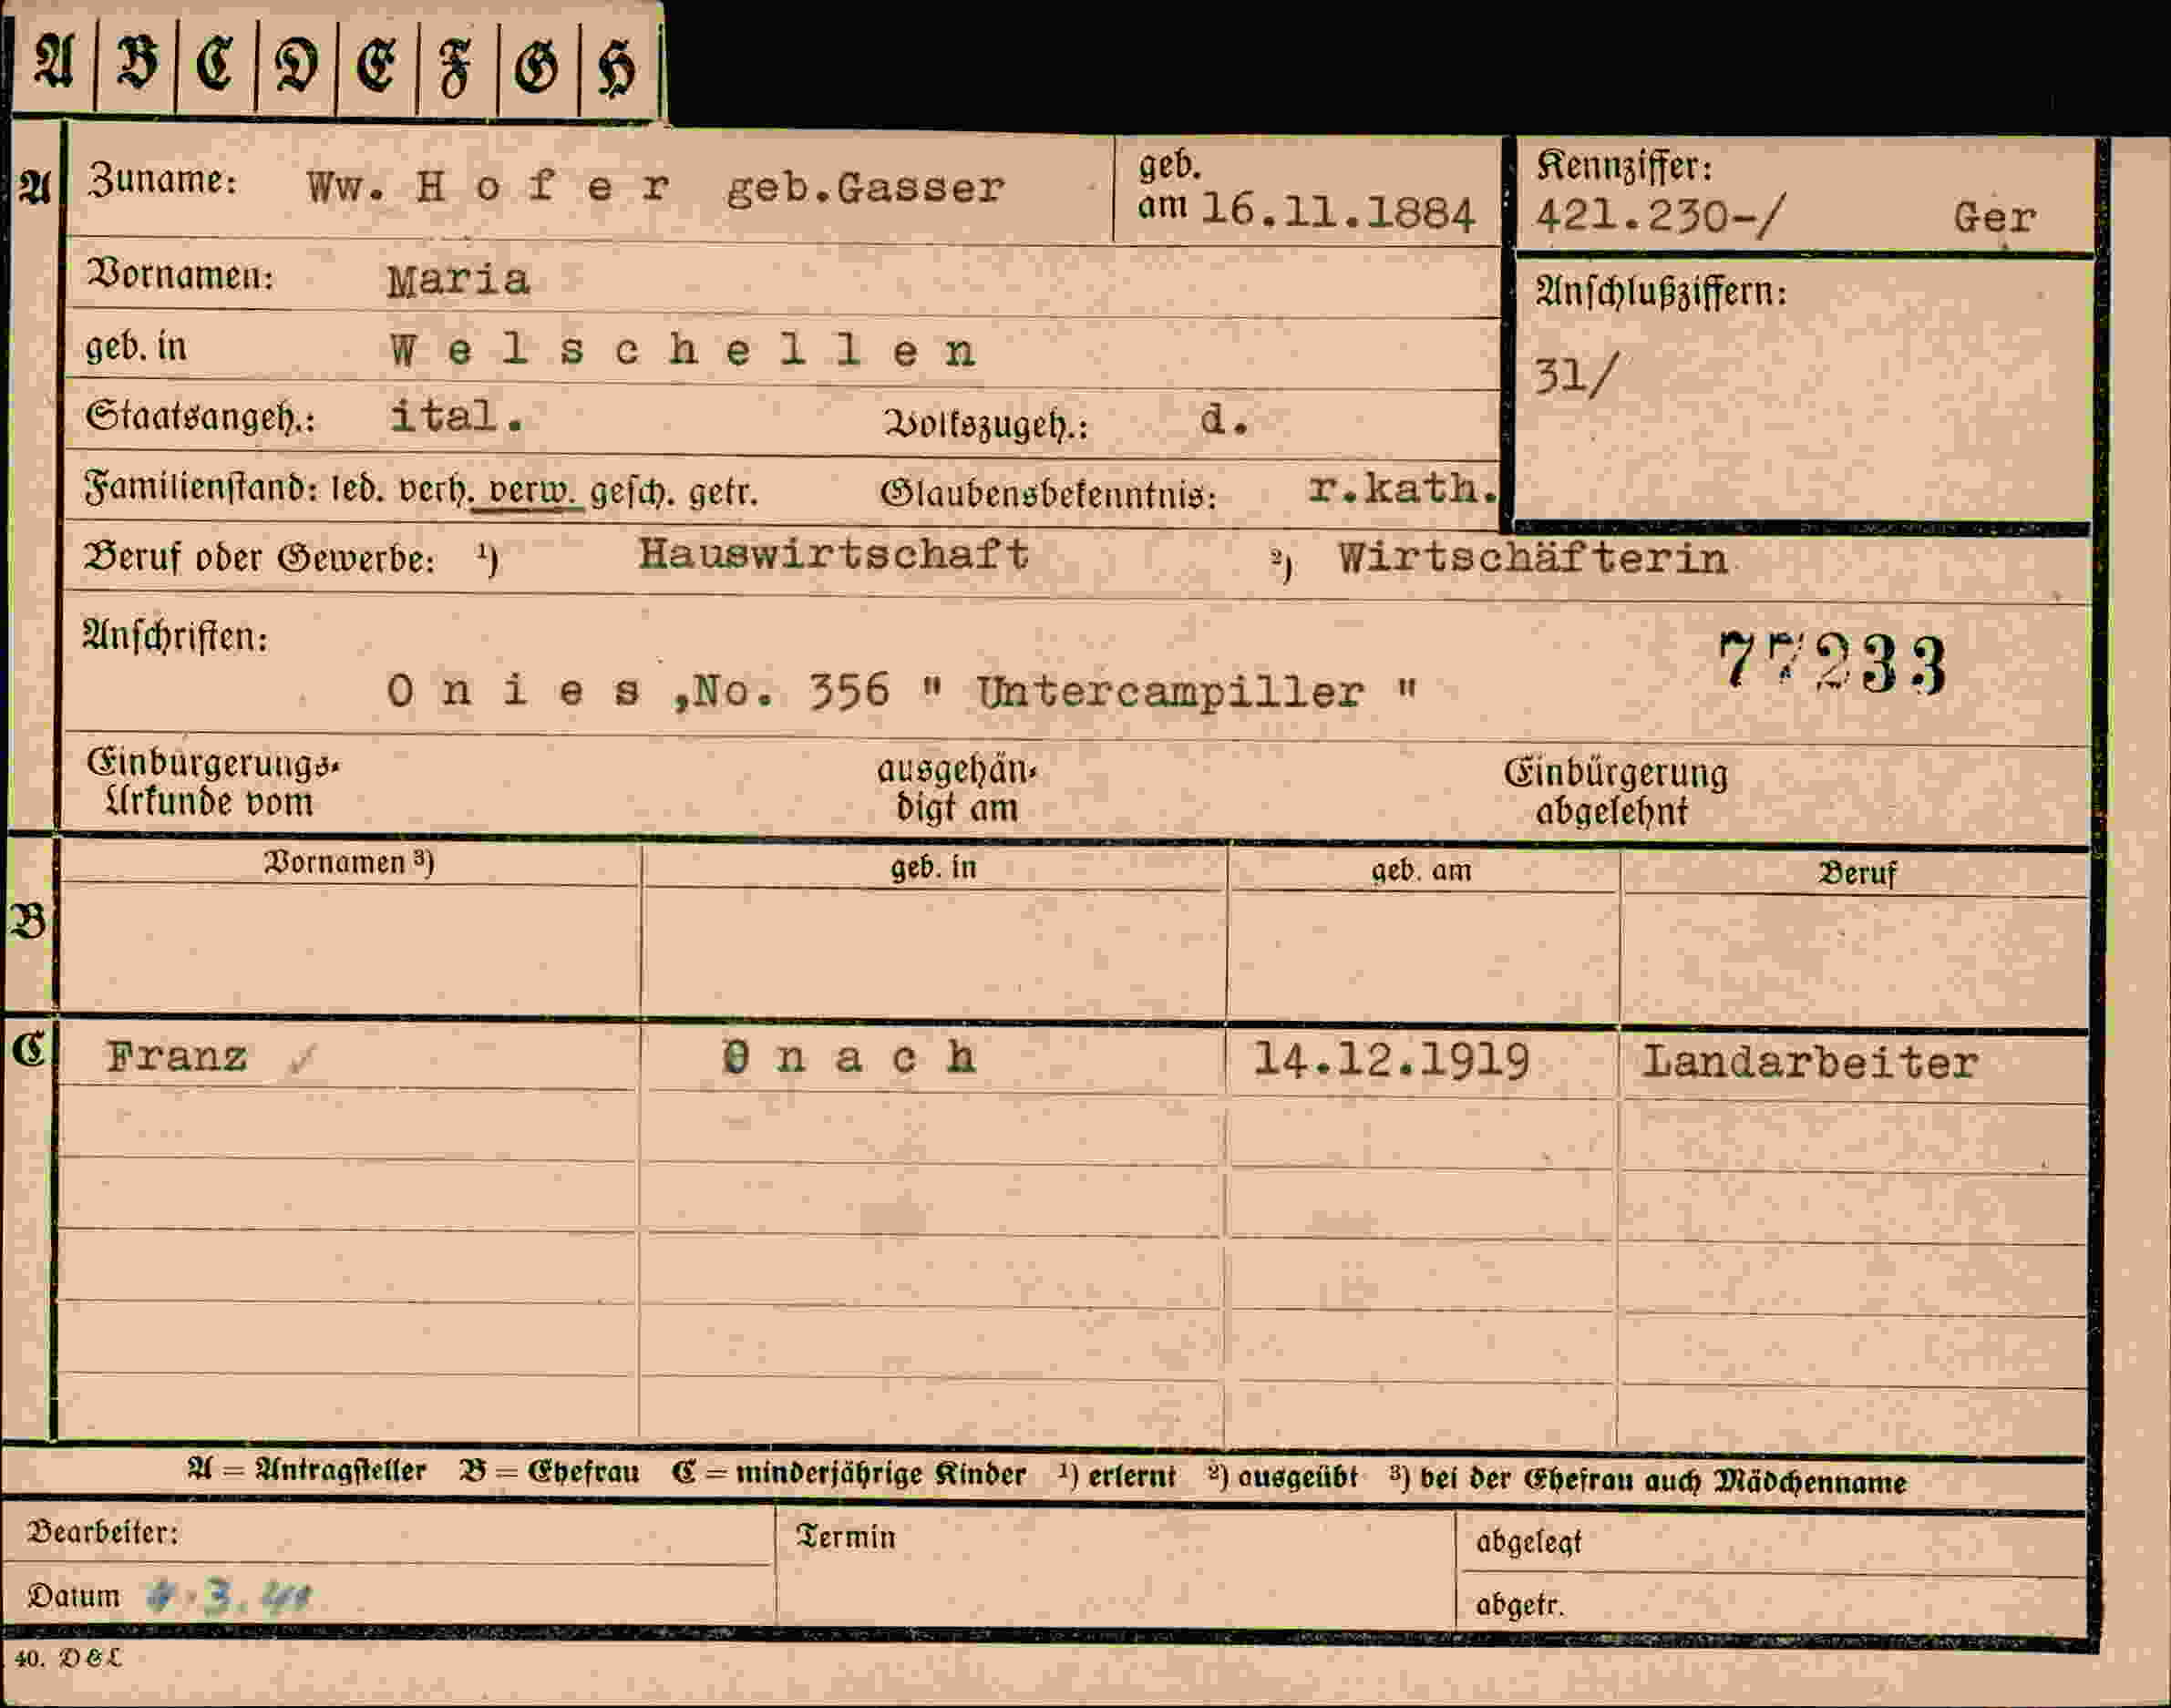 A B C D E F G H
A Zuname: Ww. H o f e r geb.Gasser geb. am 16.11.1884 Kennziffer: 421.230-/ Ger
Vornamen: Maria Anschlußziffern:
geb. in W e l s c h e l l e n 31/
Staatsangeh.: ital. Volkszugeh.: d.
Familienstand: led. verh. verw. gesch. getr. Glaubensbekenntnis: r.kath.
Beruf oder Gewerbe: ¹) Hauswirtschaft ²) Wirtschäfterin
Anschriften: 77233
O n i e s ,No. 356 " Untercampiller "
Einbürgerungs- ausgehän- Einbürgerung
Urkunde vom digt am abgelehnt
B Vornamen ³) geb. in geb. am Beruf
C Franz O n a c h 14.12.1919 Landarbeiter
A = Antragsteller B = Ehefrau C = minderjährige Kinder ¹) erlernt ²) ausgeübt ³) bei der Ehefrau auch Mädchenname
Bearbeiter: Termin abgelegt
Datum abgetr.
40. D & L